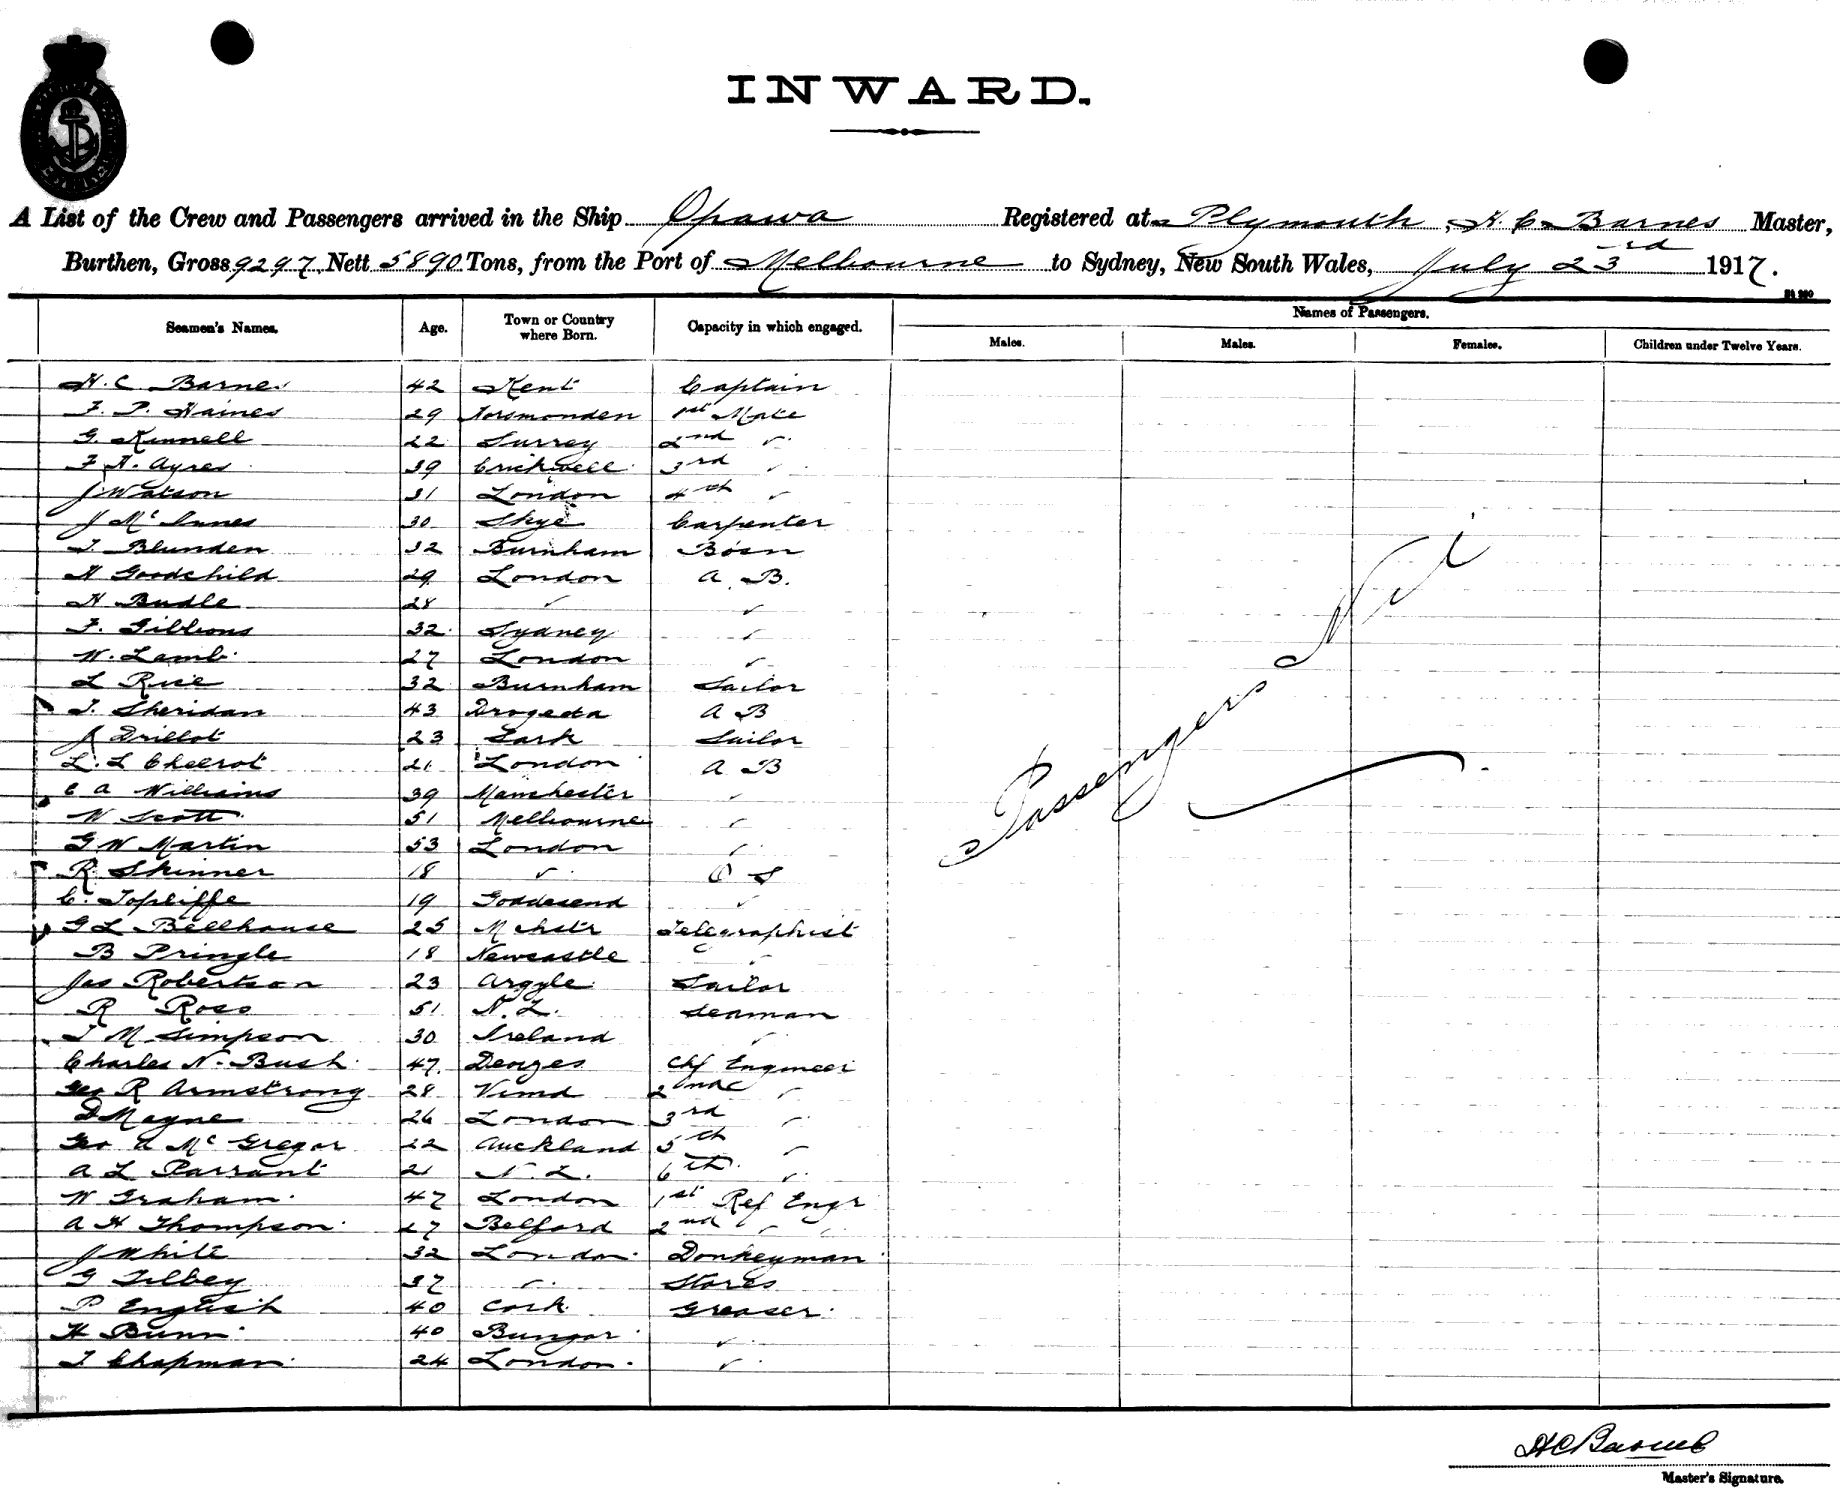 INWARD.
A List of the Crew and Passengers arrived in the Ship Opawa Registered at Plymouth, H. C. Barnes Master,
Burthen, Gross 9297 Nett 5890 Tons, from the Port of Melbourne to Sydney, New South Wales, July 23rd 1917.
Seamen's Names. Age. Town or Country where Born. Capacity in which engaged. Names of Passengers.
Males. Males. Females. Children under Twelve Years.
H. C Barnes 42 Kent Captain
F. P. Haines 29 Horsmonden 1st Mate
G. Kennell 22 Surrey 2nd "
F H. Ayres 39 3rd "
J Watson 31 London 4th "
J McInnes 30 Skye Carpenter
T. Blunden 32 Burnham Bosn
H Goodchild 29 London A B.
H Budle 28 " "
F. Gibbons 32 Sydney "
W. Lamb 27 London "
L Rice 32 Burnham Sailor
T. Sheridan 43 Drogeda A B
J Drillot 23 Sark Sailor
L. L 21 London A B
C A Williams 39 Manchester "
W Scott 51 Melbourne "
G W Martin 53 London "
R. Skinner 18 " O S
C. Topliffe 19 "
G L Bellhouse 25 Mchstr Telegraphist
B Pringle 18 Newcastle "
Jas Robertson 23 Argyle Sailor
R Ross 51 N. Z. Seaman
T M Simpson 30 Ireland "
Charles N. Bush 47 Chf Engineer
Geo R Armstrong 28 2nd "
D Mayne 26 London 3rd "
Geo A McGregor 22 Auckland 5th "
A L Parrant 21 N. Z. 6th "
W Graham 47 London 1st Ref Engr
A H Thompson 27 Belford 2nd " "
J White 32 London Donkeyman
G Tilbey 37 " Stores
P English 40 Cork Greaser
H Bunn 40 Bungor "
T Chapman 24 London "
Passengers Nil
H C Barnes
Master's Signature.